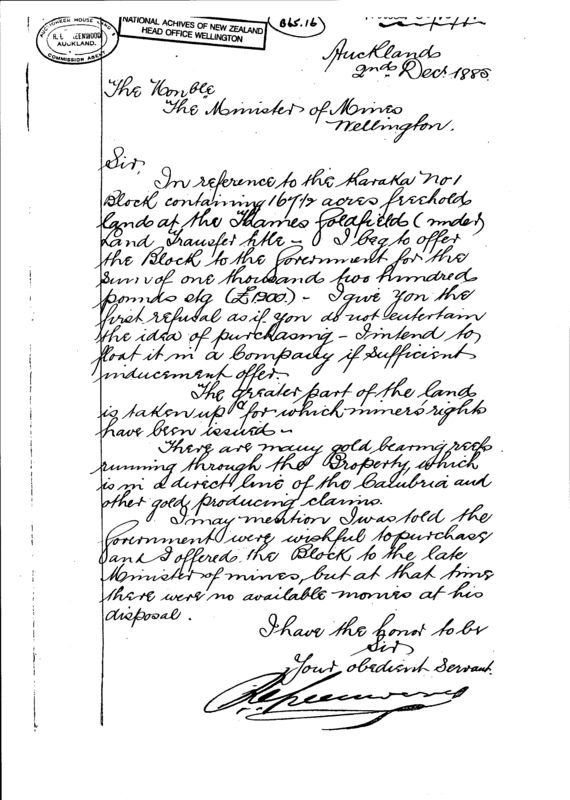 AUCTIONEER HOUSE LAND &
GREENWOOD
AUCKLAND.
COMMISSION AGENT
NATIONAL ACHIVES OF NEW ZEALAND
HEAD OFFICE WELLINGTON
B65.16
Auckland
2nd Decr 1885
The Honble
The Minister of Mines
Wellington.
Sir,
In reference to the Karaka No 1
Block containing 167½ acres freehold
lands at the Thames Goldfields (under
Land Transfer title – I beg to offer
the Block to the Government for the
Sum of one thousand two hundred
pounds stg (£1200.) – I give you the
first refusal as if you do not entertain
the idea of purchasing – I intend to
float it in a Company if sufficient
inducement offer.
The greater part of the land
is taken up for which miners rights
have been issued –
There are many gold bearing reefs
running through the Property, which
is in a direct line of the Calubria and
other gold producing claims.
I may mention I was told the
Government were wishful to purchase
and I offered the Block to the late
Minister of mines, but at that time
there were no available monies at his
disposal.
I have the honor to be
Sir
Your obedient Servant.
Greenwood